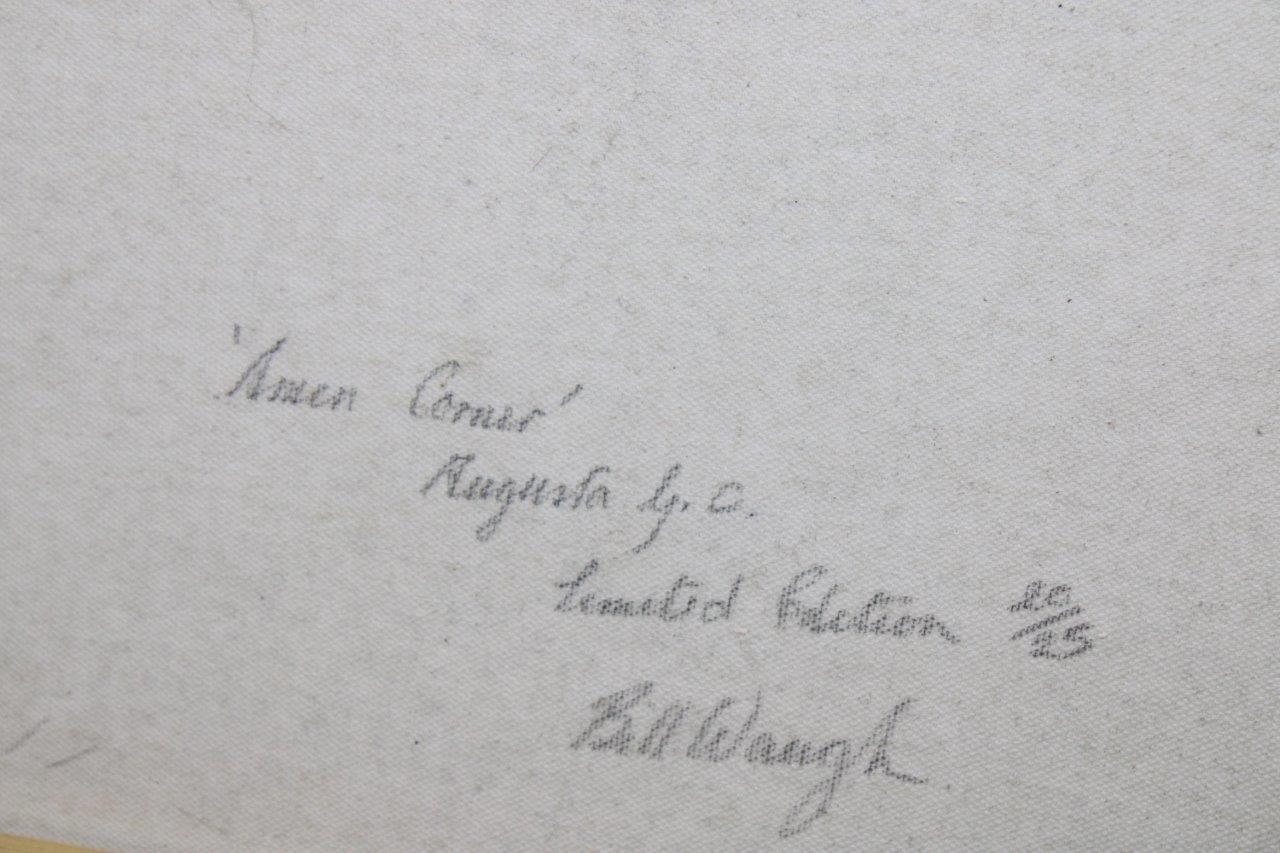 'Amen Corner'
Augusta G.C.
Limited Edition 20/25
Bill Waugh